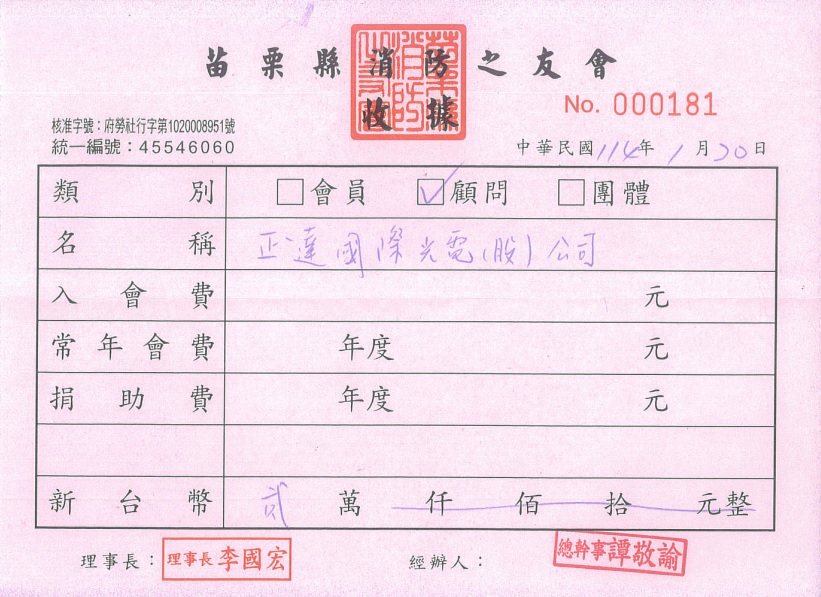 苗栗縣消防之友會
收據
No. 000181
核准字號：府勞社行字第1020008951號
統一編號：45546060
中華民國114年1月20日
類別 □會員 ☑顧問 □團體
名稱 正達國際光電(股)公司
入會費 元
常年會費 年度 元
捐助費 年度 元
新台幣 貳萬仟佰拾元整
理事長：理事長李國宏 經辦人：總幹事譚敬諭